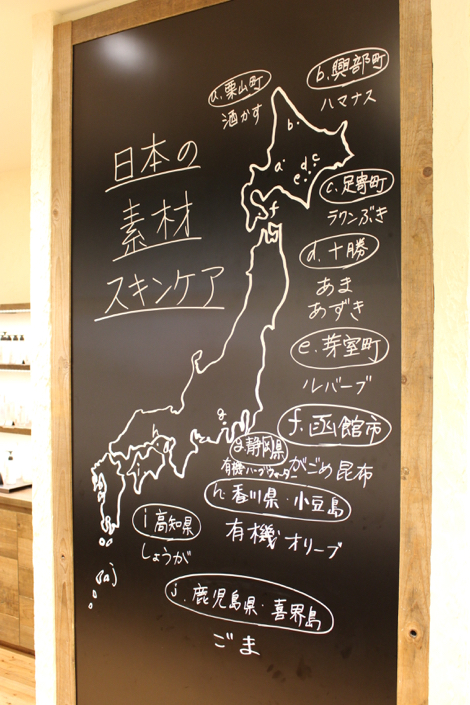 日本の
素材
スキンケア
a. 栗山町
酒かす
b. 興部町
ハマナス
c. 足寄町
ラワンぶき
d. 十勝
あま
あずき
e. 芽室町
ルバーブ
f. 函館市
がごめ昆布
g. 静岡県
有機ハーブウォーター
h. 香川県・小豆島
有機オリーブ
i 高知県
しょうが
j. 鹿児島県・喜界島
ごま
b
a
d
c
e
f
g
h
i
j